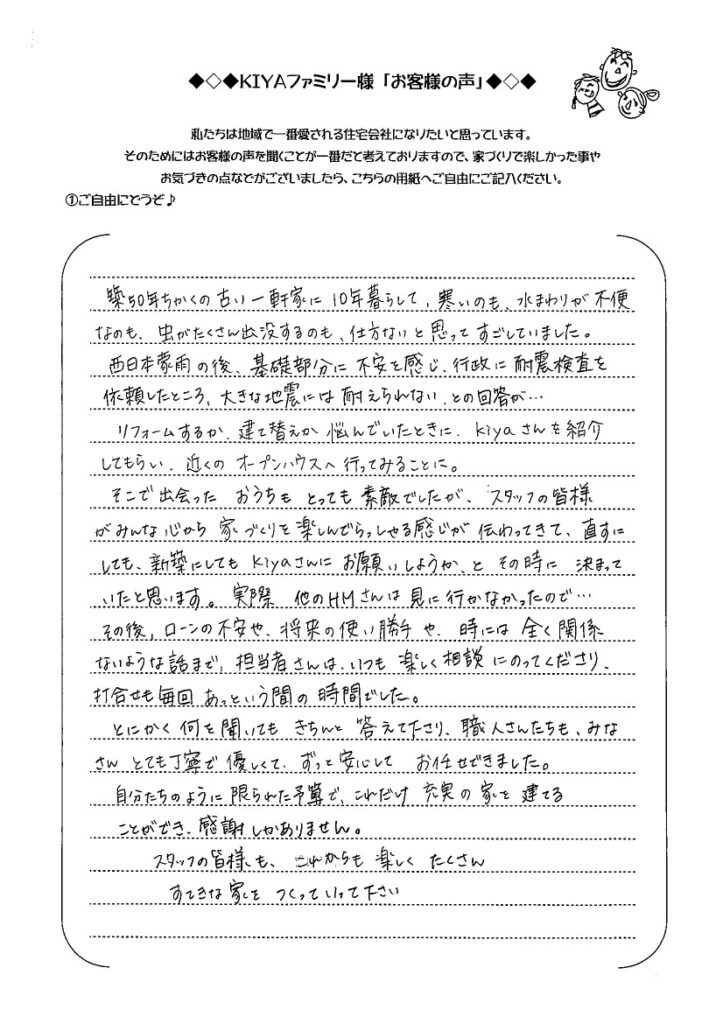 ◆◇◆KIYAファミリー様「お客様の声」◆◇◆
私たちは地域で一番愛される住宅会社になりたいと思っています。
そのためにはお客様の声を聞くことが一番だと考えておりますので、家づくりで楽しかった事や
お気づきの点などがございましたら、こちらの用紙へご自由にご記入ください。
①ご自由にどうぞ♪
築50年ちかくの古い一軒家に10年暮らして、寒いのも、水まわりが不便
なのも、虫がたくさん出没するのも、仕方ないと思ってすごしていました。
西日本豪雨の後、基礎部分に不安を感じ、行政に耐震検査を
依頼したところ、大きな地震には耐えられない、との回答が…
リフォームするか、建て替えか悩んでいたときに、kiyaさんを紹介
してもらい、近くのオープンハウスへ行ってみることに。
そこで出会ったおうちもとっても素敵でしたが、スタッフの皆様
がみんな心から家づくりを楽しんでらっしゃる感じが伝わってきて、直すに
しても、新築にしてもkiyaさんにお願いしようか、とその時に決まって
いたと思います。実際他のHMさんは見に行かなかったので…
その後、ローンの不安や、将来の使い勝手や、時には全く関係
ないような話まで、担当者さんは、いつも楽しく相談にのってくださり、
打合せも毎回あっという間の時間でした。
とにかく何を聞いてもきちんと答えて下さり、職人さんたちも、みな
さんとても丁寧で優しくて、ずっと安心してお任せできました。
自分たちのように限られた予算で、これだけ充実の家を建てる
ことができ、感謝しかありません。
スタッフの皆様も、これからも楽しくたくさん
すてきな家をつくっていって下さい